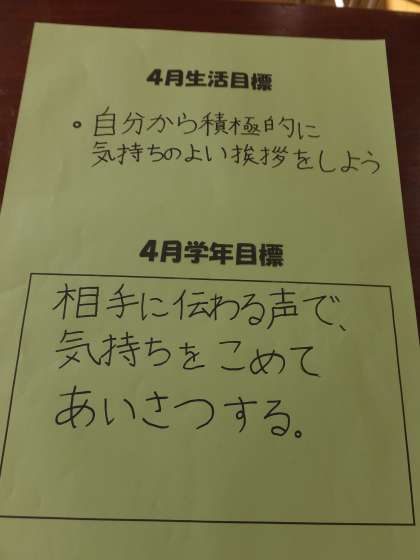 4月生活目標
• 自分から積極的に
気持ちのよい挨拶をしよう
4月学年目標
相手に伝わる声で、
気持ちをこめて
あいさつする。